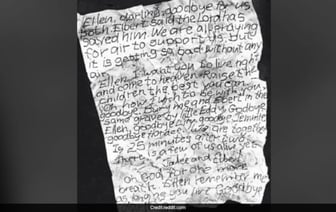 Ellen, darling, goodbye for us
both. Elbert said the Lord has
saved him. We are all praying
for air to support us, but
it is getting so bad without any
air.
Ellen, I want you to live right
and come to heaven. Raise the
children the best you can.
Oh how I wish to be with you,
goodbye. Bury me and Elbert in the
same grave by little Eddy. Goodbye
Ellen, goodbye Lily, goodbye Jemmie
goodbye Horace. We are together.
Is 25 minutes after two.
There is a few of us alive yet.
Jake and Elbert
Oh God for one more
breath. Ellen remember me
as long as you live Goodbye
Credit:reddit.com